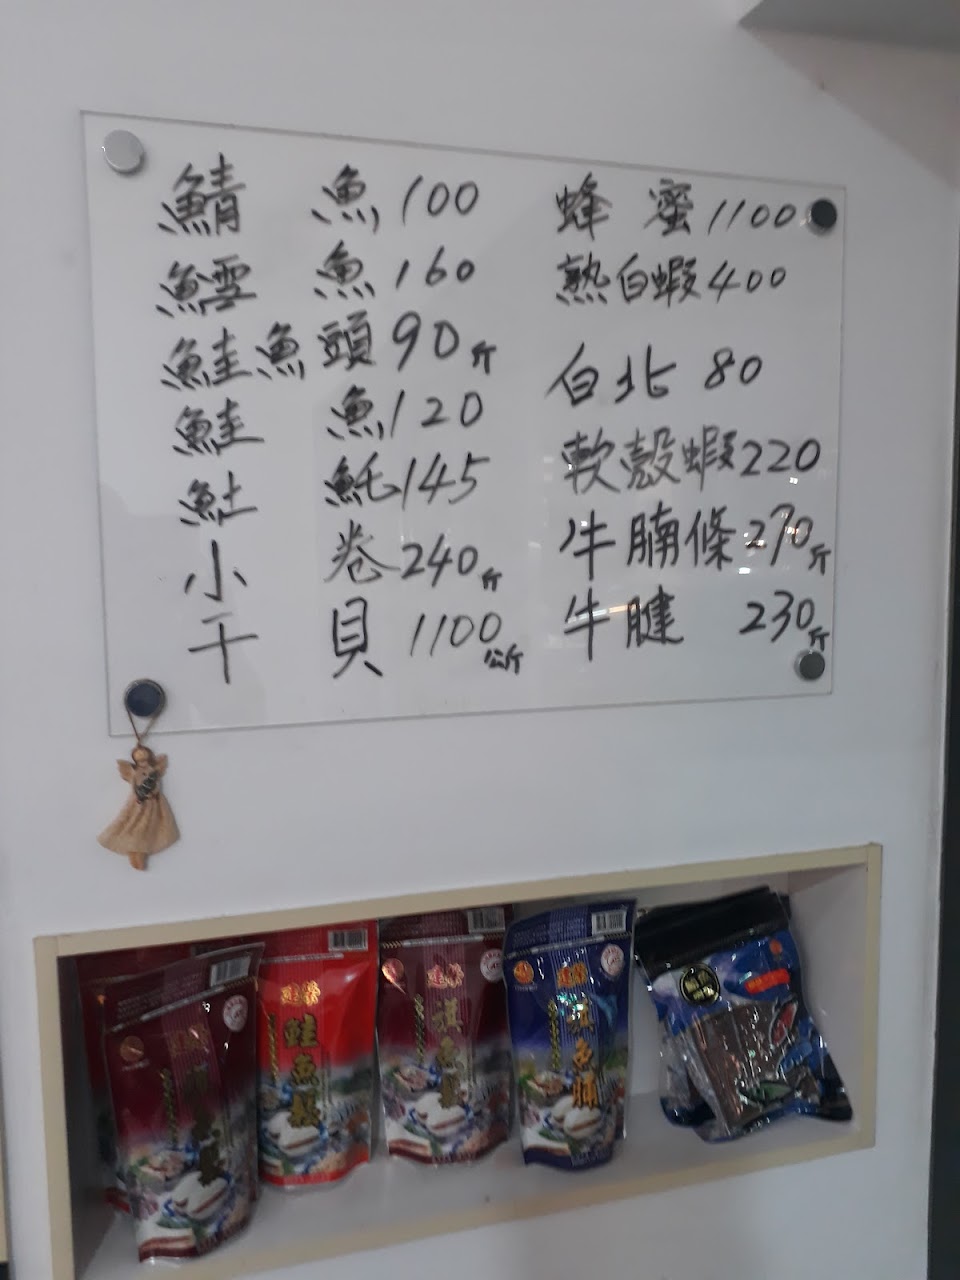 鯖魚100
鱈魚160
鮭魚頭90斤
鮭魚120
魠145
小卷240斤
干貝1100公斤
蜂蜜1100
熟白蝦400
白北80
軟殼蝦220
牛腩條270斤
牛腱230斤
鮭魚鬆
旗魚鬆
旗魚脯